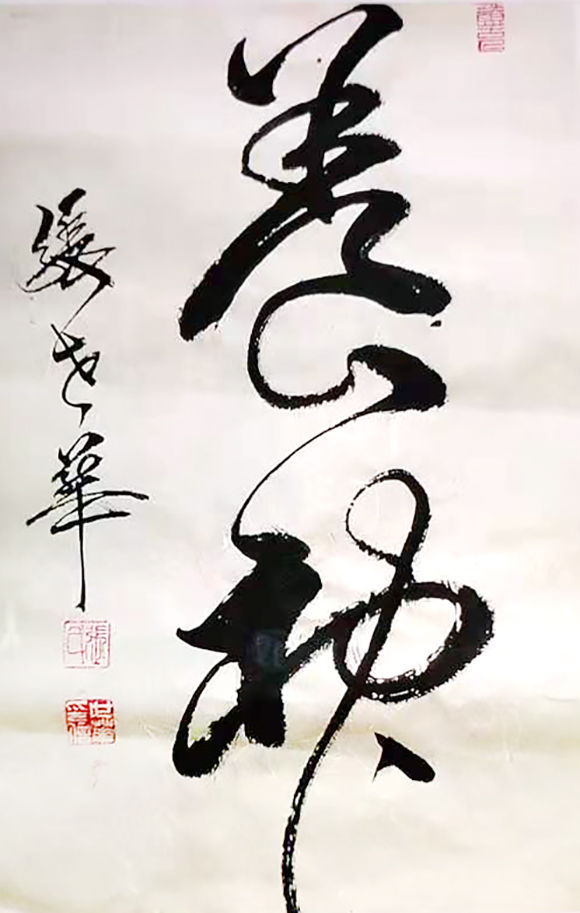 養神
張世華